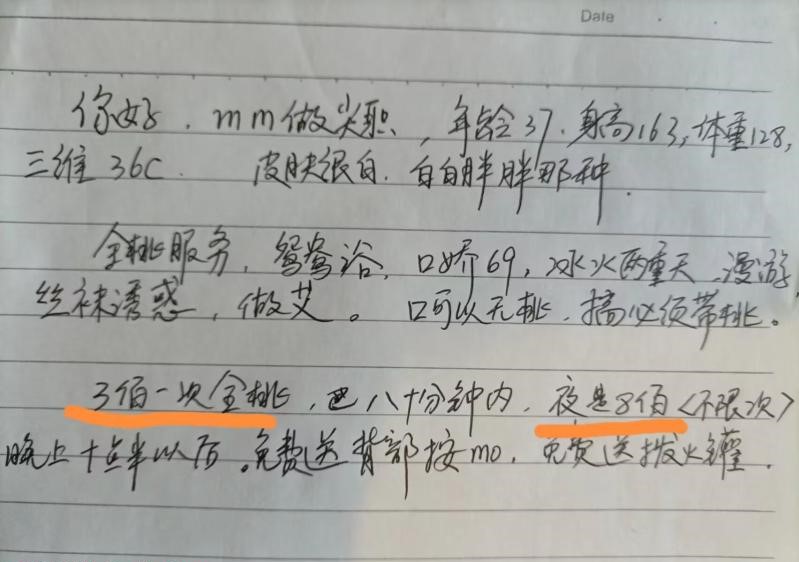 Date
你好.mm做尖职,年龄37.身高163,体重128,
三维36C.皮肤很白.白白胖胖那种.
全桃服务,鸳鸯浴,口娇69,冰火两重天,漫游
丝袜诱惑,做艾。口可以无桃,搞必须带桃。
3佰一次全桃,八十分钟内.夜是8佰<不限次>
晚上十点半以后。免费送背部按mo,免费送拨火罐.